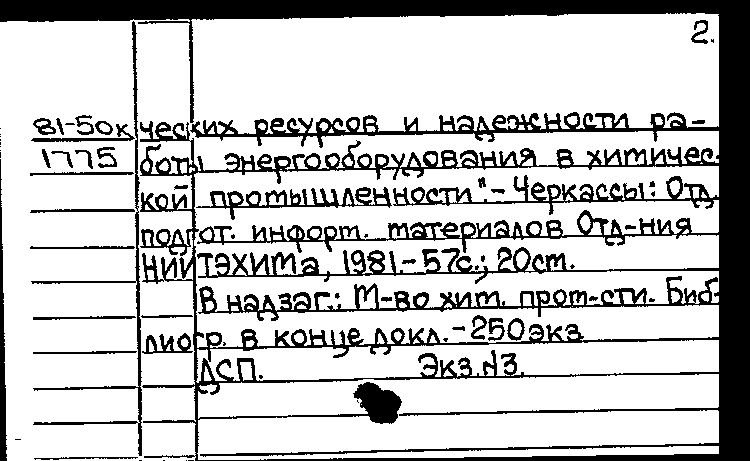 2.
81-50к ческих ресурсов и надежности ра-
1775 боты энергооборудования в химичес-
кой промышленности".- Черкассы: Отд.
подгот. информ. материалов Отд-ния
НИИТЭХИМа, 1981.- 57с.; 20см.
В надзаг.: М-во хим. пром-сти. Биб-
лиогр. в конце докл. - 250экз
ДСП. Экз.№3.